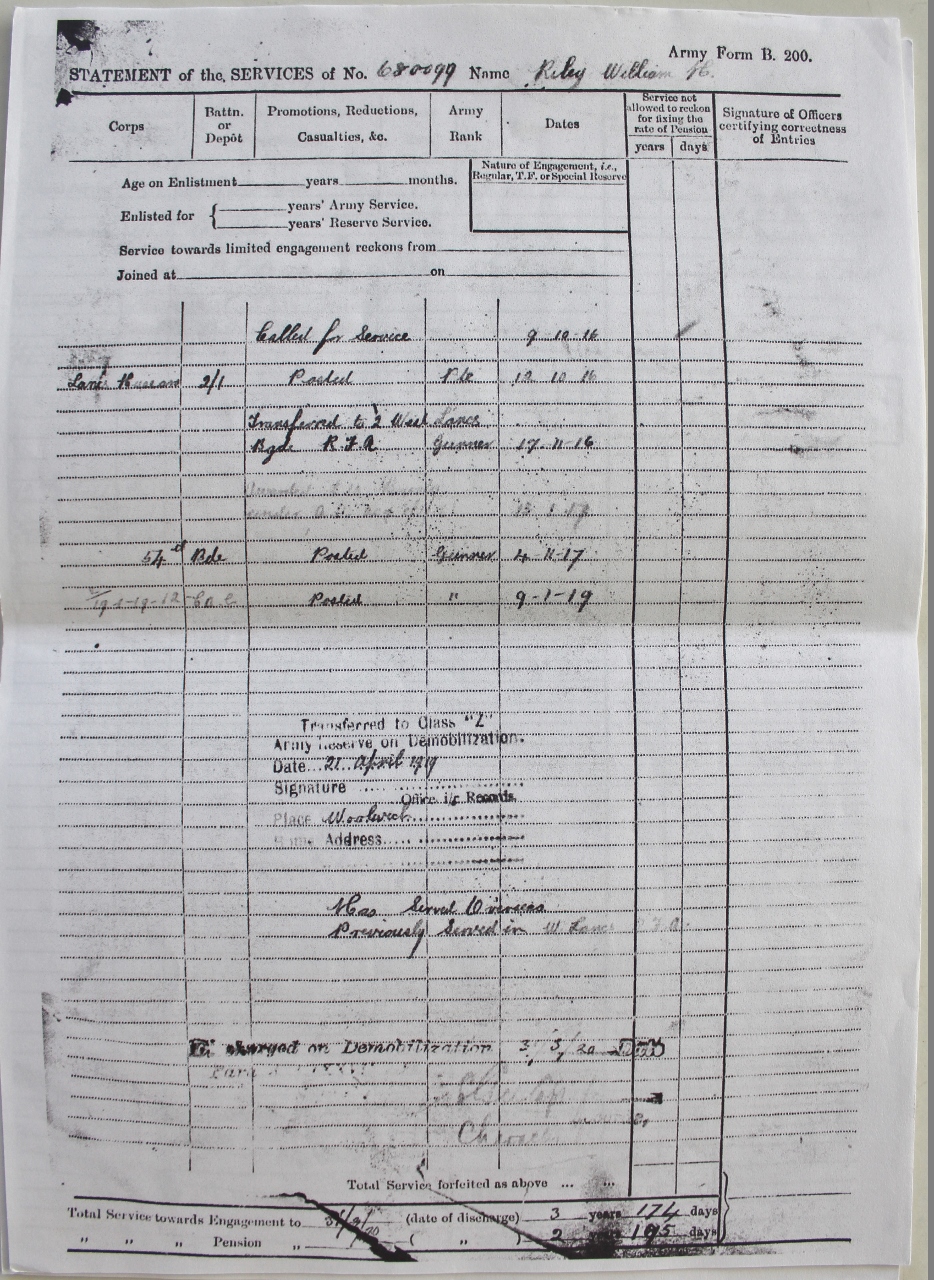 Army Form B. 200.
STATEMENT of the SERVICES of No. 680099 Name Riley William H.
Corps
Battn. or Depôt
Promotions, Reductions, Casualties, &c.
Army Rank
Dates
Service not allowed to reckon for fixing the rate of Pension
years days
Signature of Officers certifying correctness of Entries
Age on Enlistment years months.
Nature of Engagement, i.e., Regular, T.F. or Special Reserve
Enlisted for { years' Army Service.
years' Reserve Service.
Service towards limited engagement reckons from
Joined at on
Called for Service 9 10 16
2/1 Posted Pte 12 10 16
Transferred to 2 West Lancs
Bgde R F A Gunner 17 11 16
under
Bde Posted Gunner 4 11 17
Posted " 9-1-19
Transferred to Class "Z"
Army Reserve on Demobilization.
Date 21 April 1919
Signature
Office i/c Records.
Place Woolwich
Address
Has Served Overseas
Previously Served in W Lancs
on Demobilization 3/3/20
Total Service forfeited as above ... ...
Total Service towards Engagement to (date of discharge) 3 years 174 days
" " " Pension " ( " ) 2 years 195 days